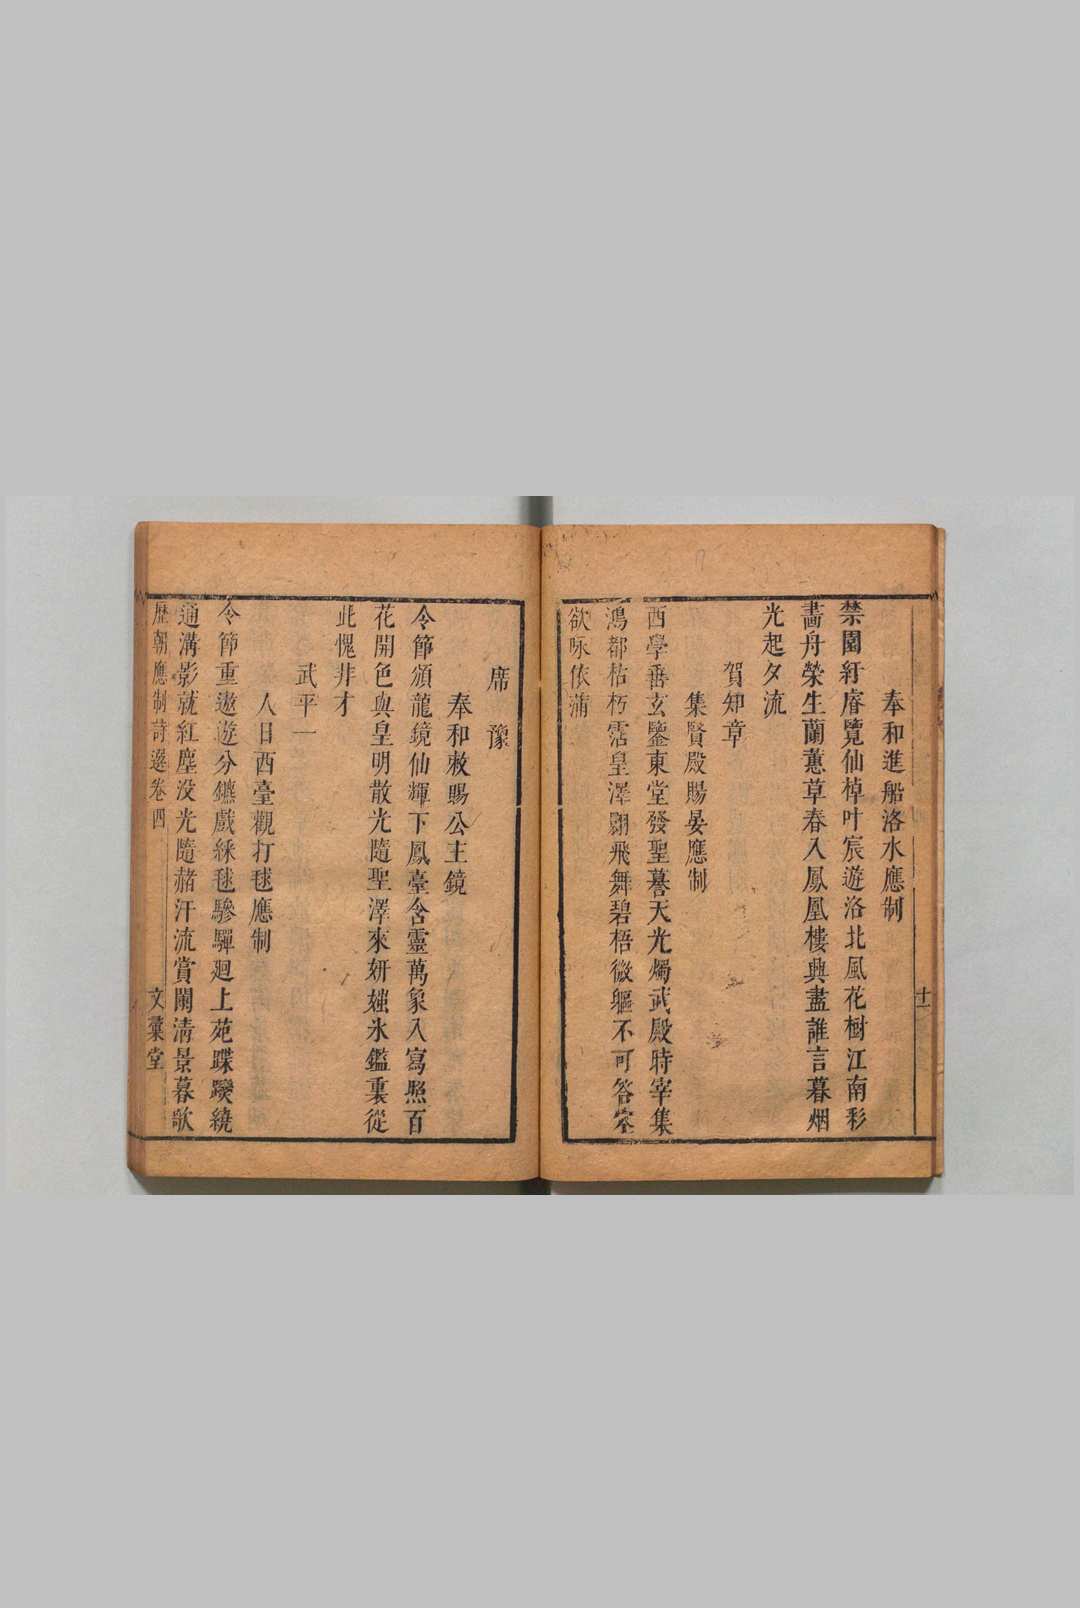 奉和進船洛水應制
禁園紆睿覽仙棹叶宸遊洛北風花樹江南彩
畵舟榮生蘭蕙草春入鳳凰樓興盡誰言暮烟
光起夕流
賀知章
集賢殿賜晏應制
西學垂玄鑒東堂發聖謩天光燭武殿時宰集
鴻都枯朽霑皇澤翾飛舞碧梧微軀不可答空
欲咏依蒲
十一
席豫
奉和敕賜公主鏡
令節頒龍鏡仙輝下鳳臺含靈萬象入寫照百
花開色與皇明散光隨聖澤來妍媸氷鑑裏從
此愧非才
武平一
人日西臺觀打毬應制
令節重遨遊分鑣戲綵毬驂驔廻上苑蹀躞繞
通溝影就紅塵没光隨赭汗流賞闌清景暮歌
歴朝應制詩選卷四
文彚堂